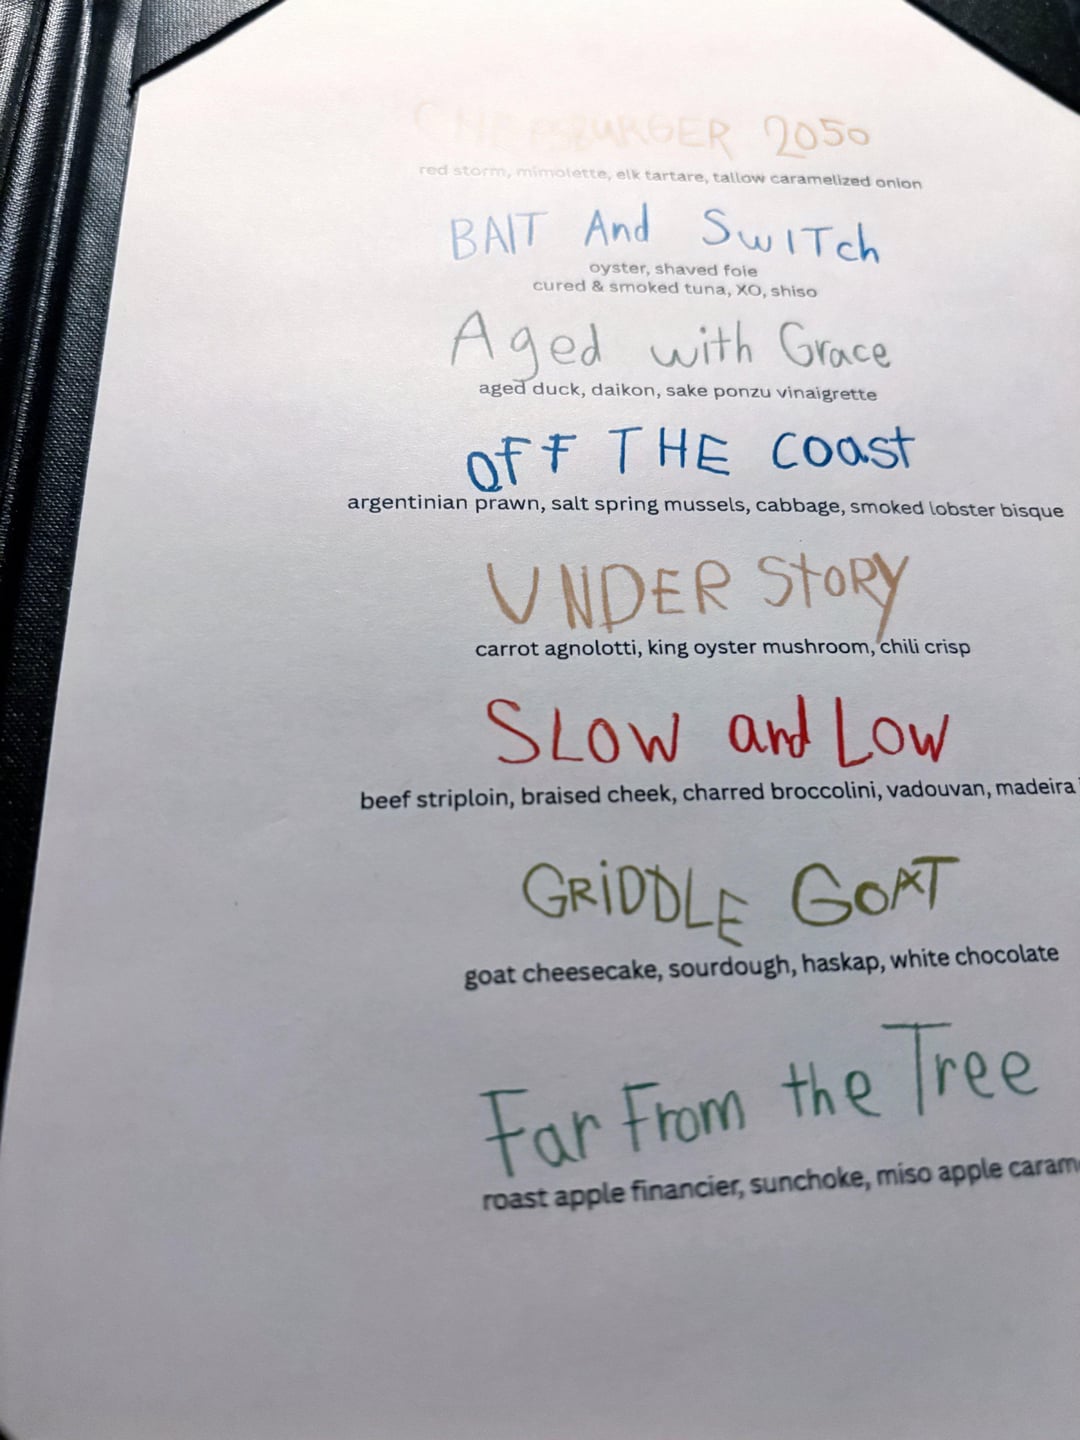 CHEESBURGER 2050
red storm, mimolette, elk tartare, tallow caramelized onion
BAIT And SwITch
oyster, shaved foie
cured & smoked tuna, XO, shiso
Aged with Grace
aged duck, daikon, sake ponzu vinaigrette
OFF THE coast
argentinian prawn, salt spring mussels, cabbage, smoked lobster bisque
UNDER StoRY
carrot agnolotti, king oyster mushroom, chili crisp
SLOW and Low
beef striploin, braised cheek, charred broccolini, vadouvan, madeira
GRiDDLE GOAT
goat cheesecake, sourdough, haskap, white chocolate
Far From the Tree
roast apple financier, sunchoke, miso apple